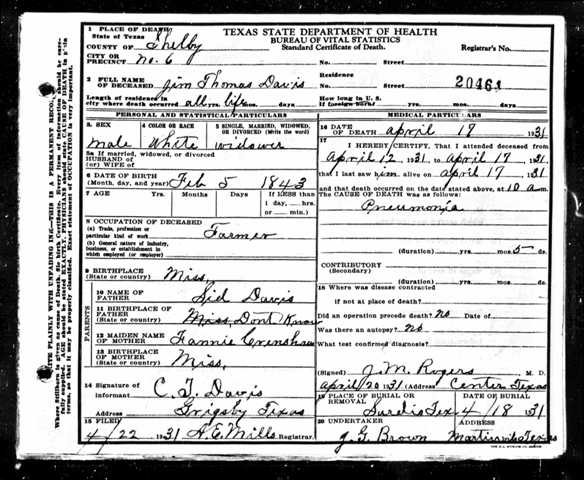 TEXAS STATE DEPARTMENT OF HEALTH
BUREAU OF VITAL STATISTICS
Standard Certificate of Death.
1 PLACE OF DEATH
State of Texas
COUNTY OF Shelby
CITY OR PRECINCT No. 6
No. Street
Registrar's No.
2 FULL NAME OF DECEASED Jim Thomas Davis
Residence
No. Street
20461
Length of residence in city where death occurred all life yrs. mos. days
How long in U. S. if foreign born? yrs. mos. days
PERSONAL AND STATISTICAL PARTICULARS
3. SEX male
4 COLOR OR RACE White
5 SINGLE, MARRIED, WIDOWED, OR DIVORCED (Write the word) widower
5a If married, widowed, or divorced
HUSBAND OF
(or) WIFE OF
6 DATE OF BIRTH
(Month, day, and year) Feb 5 1843
7 AGE Yrs. Months Days If LESS than 1 day, hrs. or min.
8 OCCUPATION OF DECEASED
(a) Trade, profession or particular kind of work Farmer
(b) General nature of industry, business, or establishment in which employed (or employer)
9 BIRTHPLACE
(State or country) Miss.
PARENTS
10 NAME OF FATHER Sid Davis
11 BIRTHPLACE OF FATHER
(State or country) Miss, Dont Know
12 MAIDEN NAME OF MOTHER Fannie Crenshaw
13 BIRTHPLACE OF MOTHER
(State or country) Miss,
14 Signature of informant C. T. Davis
Address Grigsby Texas
15 FILED 4/22 1931 A. E. Mills Registrar.
MEDICAL PARTICULARS
16 DATE OF DEATH april 18 1931
17 I HEREBY CERTIFY, That I attended deceased from
April 12 1931 to april 17 1931
that I last saw him alive on april 17 1931
and that death occurred on the date stated above, at 10 am.
The CAUSE OF DEATH was as follows:
Pneumonia
(duration) yrs. mos. 5 ds.
CONTRIBUTORY
(Secondary)
(duration) yrs. mos. ds.
18 Where was disease contracted
if not at place of death?
Did an operation precede death? no Date of
Was there an autopsy? no
What test confirmed diagnosis?
(Signed) J. M. Rogers M. D.
april 20 1931 (Address) Center, Texas
19 PLACE OF BURIAL OR REMOVAL Tex
DATE OF BURIAL 4/18 1931
20 UNDERTAKER J. G. Brown
Address Martinsville Texas